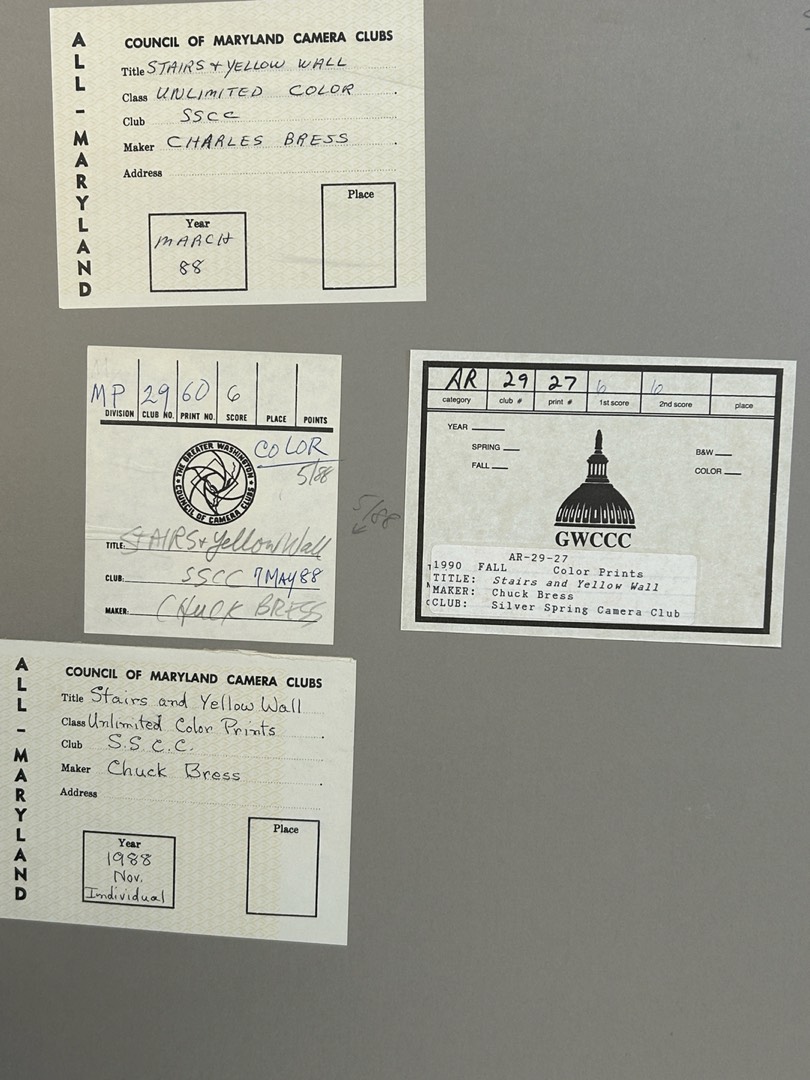 ALL-MARYLAND
COUNCIL OF MARYLAND CAMERA CLUBS
Title STAIRS + YELLOW WALL
Class UNLIMITED COLOR
Club SSCC
Maker CHARLES BRESS
Address
Year
MARCH
88
Place
MP 29 60 6
DIVISION CLUB NO. PRINT NO. SCORE PLACE POINTS
COLOR
5/88
THE GREATER WASHINGTON COUNCIL OF CAMERA CLUBS
TITLE: STAIRS + Yellow Wall
CLUB: SSCC 7 MAY 88
MAKER: CHUCK BRESS
5/88
AR 29 27 6 6
category club # print # 1st score 2nd score place
YEAR
SPRING
FALL
B&W
COLOR
GWCCC
AR-29-27
1990 FALL Color Prints
TITLE: Stairs and Yellow Wall
MAKER: Chuck Bress
CLUB: Silver Spring Camera Club
ALL-MARYLAND
COUNCIL OF MARYLAND CAMERA CLUBS
Title Stairs and Yellow Wall
Class Unlimited Color Prints
Club S.S.C.C.
Maker Chuck Bress
Address
Year
1988
Nov.
Individual
Place